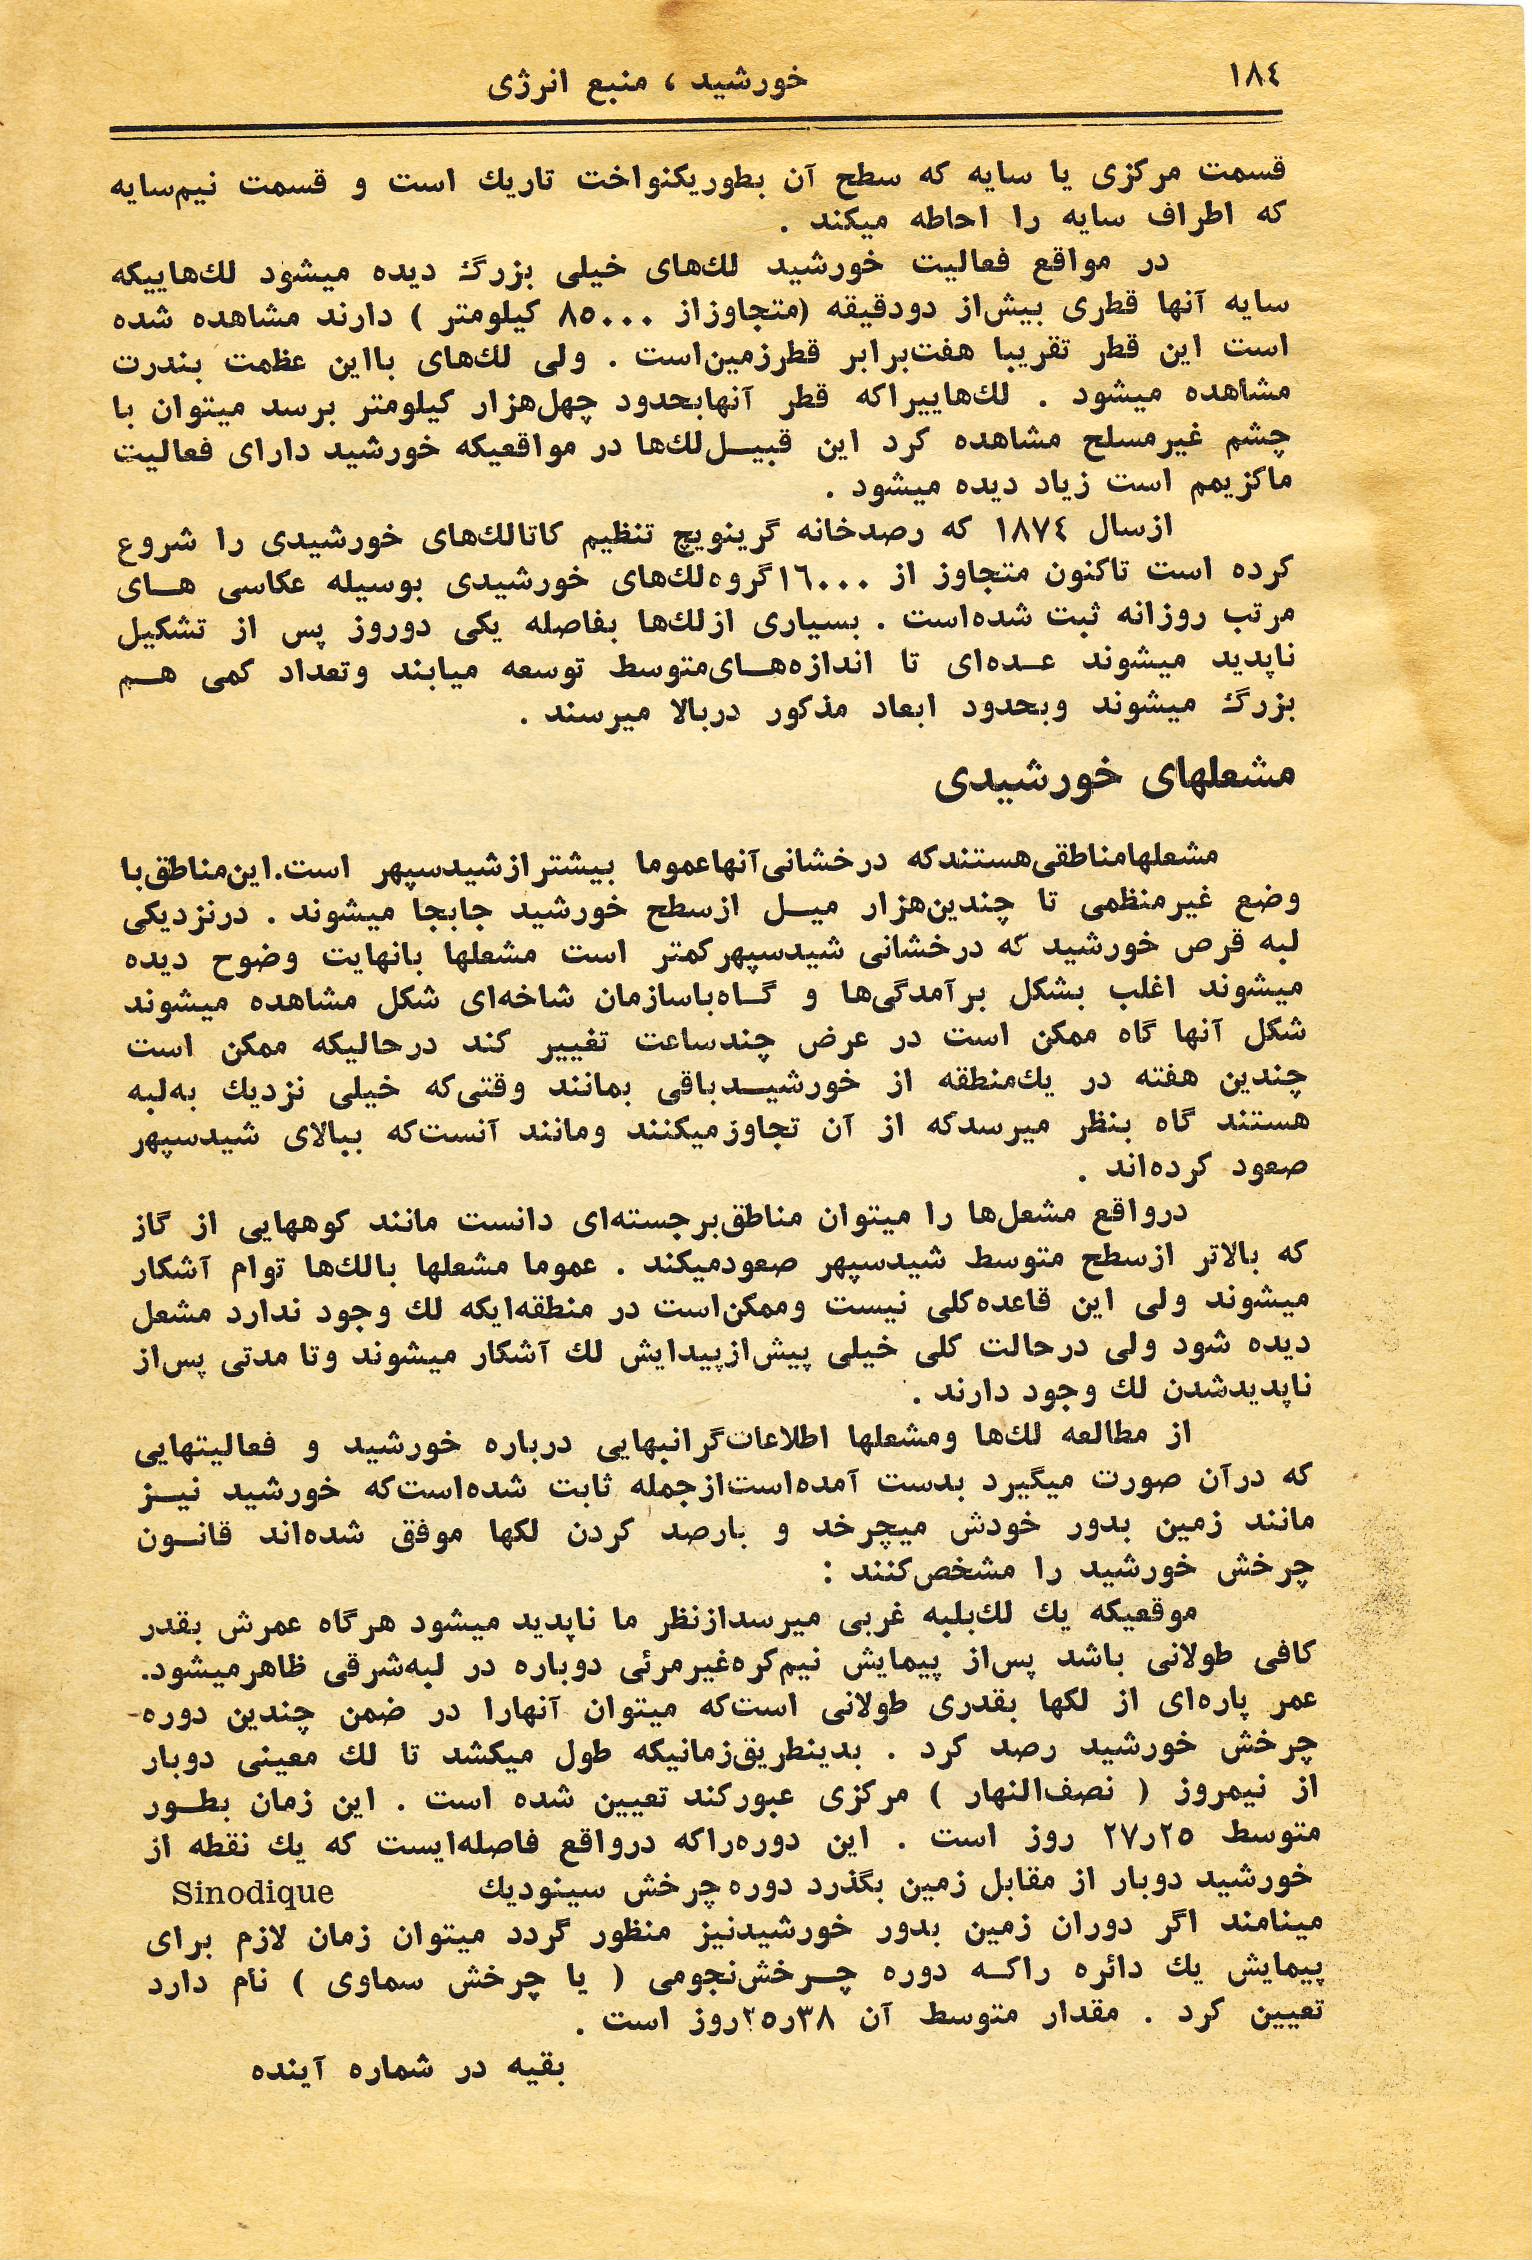 ١٨٤
خورشید ، منبع انرژی
قسمت مرکزی یا سایه که سطح آن بطوریکنواخت تاریك است و قسمت نیم‌سایه
که اطراف سایه را احاطه میکند .
در مواقع فعالیت خورشید لك‌های خیلی بزرگ دیده میشود لك‌هاییکه
سایه آنها قطری بیش‌از دودقیقه (متجاوزاز ٨٥٠٠٠ کیلومتر ) دارند مشاهده شده
است این قطر تقریبا هفت‌برابر قطرزمین‌است . ولی لك‌های بااین عظمت بندرت
مشاهده میشود . لك‌هاییراکه قطر آنهابحدود چهل‌هزار کیلومتر برسد میتوان با
چشم غیرمسلح مشاهده کرد این قبیـل‌لك‌ها در مواقعیکه خورشید دارای فعالیت
ماکزیمم است زیاد دیده میشود .
ازسال ١٨٧٤ که رصدخانه گرینویچ تنظیم کاتالك‌های خورشیدی را شروع
کرده است تاکنون متجاوز از ١٦٠٠٠گروه‌لك‌های خورشیدی بوسیله عکاسی هـای
مرتب روزانه ثبت شده‌است . بسیاری ازلك‌ها بفاصله یکی دوروز پس از تشکیل
ناپدید میشوند عـده‌ای تا اندازه‌هـای‌متوسط توسعه میابند وتعداد کمی هـم
بزرگ میشوند وبحدود ابعاد مذکور دربالا میرسند .
مشعلهای خورشیدی
مشعلهامناطقی‌هستندکه درخشانی‌آنهاعموما بیشترازشیدسپهر است.این‌مناطق‌با
وضع غیرمنظمی تا چندین‌هزار میـل ازسطح خورشید جابجا میشوند . درنزدیکی
لبه قرص خورشید که درخشانی شیدسپهرکمتر است مشعلها بانهایت وضوح دیده
میشوند اغلب بشکل برآمدگی‌ها و گـاه‌باسازمان شاخه‌ای شکل مشاهده میشوند
شکل آنها گاه ممکن است در عرض چندساعت تغییر کند درحالیکه ممکن است
چندین هفته در یك‌منطقه از خورشیـدباقی بمانند وقتی‌که خیلی نزدیك به‌لبه
هستند گاه بنظر میرسدکه از آن تجاوزمیکنند ومانند آنست‌که ببالای شیدسپهر
صعود کرده‌اند .
درواقع مشعل‌ها را میتوان مناطق‌برجسته‌ای دانست مانند کوههایی از گاز
که بالاتر ازسطح متوسط شیدسپهر صعودمیکند . عموما مشعلها بالك‌ها توام آشکار
میشوند ولی این قاعده‌کلی نیست وممکن‌است در منطقه‌ایکه لك وجود ندارد مشعل
دیده شود ولی درحالت کلی خیلی پیش‌ازپیدایش لك آشکار میشوند وتا مدتی پس‌از
ناپدیدشدن لك وجود دارند .
از مطالعه لك‌ها ومشعلها اطلاعات‌گرانبهایی درباره خورشید و فعالیتهایی
که درآن صورت میگیرد بدست آمده‌است‌ازجمله ثابت شده‌است‌که خورشید نیـز
مانند زمین بدور خودش میچرخد و بارصد کردن لکها موفق شده‌اند قانـون
چرخش خورشید را مشخص‌کنند :
موقعیکه یك لك‌بلبه غربی میرسدازنظر ما ناپدید میشود هرگاه عمرش بقدر
کافی طولانی باشد پس‌از پیمایش نیم‌کره‌غیرمرئی دوباره در لبه‌شرقی ظاهرمیشود.
عمر پاره‌ای از لکها بقدری طولانی است‌که میتوان آنهارا در ضمن چندین دوره-
چرخش خورشید رصد کرد . بدینطریق‌زمانیکه طول میکشد تا لك معینی دوبار
از نیمروز ( نصف‌النهار ) مرکزی عبورکند تعیین شده است . این زمان بطـور
متوسط ٢٧ر٢٥ روز است . این دوره‌راکه درواقع فاصله‌ایست که یك نقطه از
خورشید دوبار از مقابل زمین بگذرد دوره چرخش سینودیك Sinodique
مینامند اگر دوران زمین بدور خورشیدنیز منظور گردد میتوان زمان لازم برای
پیمایش یك دائره راکـه دوره چـرخش‌نجومی ( یا چرخش سماوی ) نام دارد
تعیین کرد . مقدار متوسط آن ٢٥ر٣٨روز است .
بقیه در شماره آینده